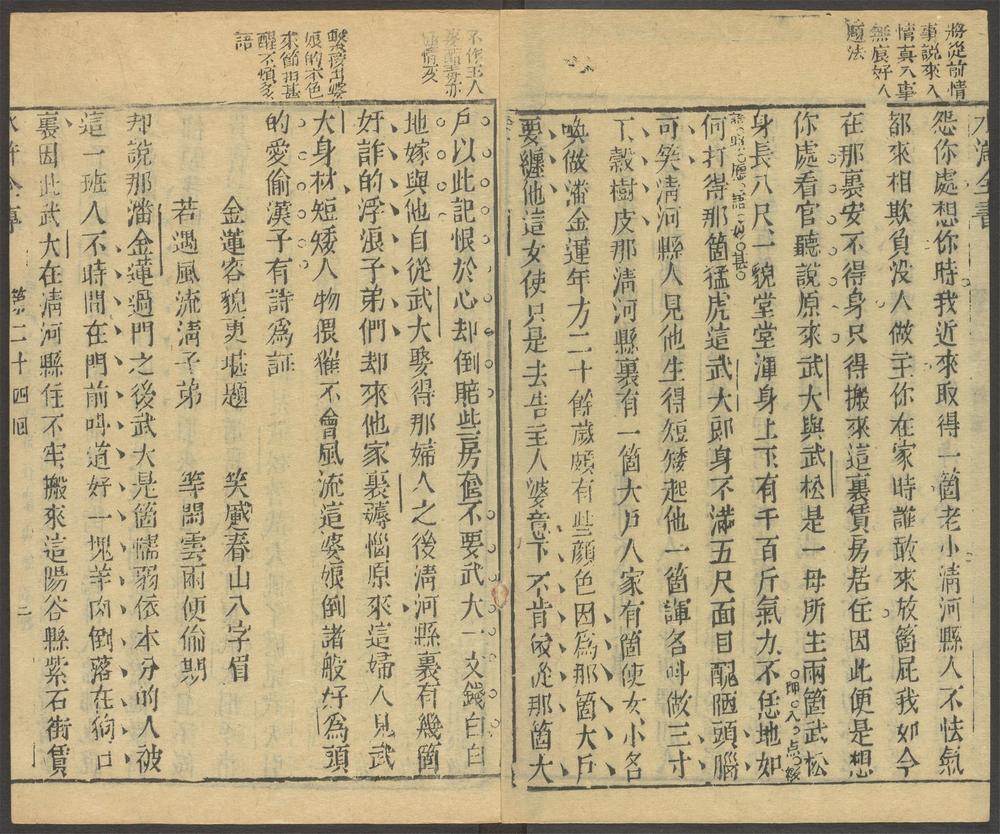 將從前情
事說來入
情真入事
無痕好入
題法
水滸全書
怨你處想你時我近來取得一箇老小清河縣人不怯氣
都來相欺負沒人做主你在家時誰敢來放箇屁我如今
在那裏安不得身只得搬來這裏賃房居住因此便是想
你處看官聽說原來武大與武松是一母所生兩箇武松
身長八尺一貌堂堂渾身上下有千百斤氣力不恁地如
何打得那箇猛虎這武大郎身不滿五尺面目醜陋頭腦
可笑清河縣人見他生得短矮起他一箇諢名叫做三寸
丁穀樹皮那清河縣裏有一箇大戶人家有箇使女小名
喚做潘金蓮年方二十餘歲頗有些顏色因為那箇大戶
要纏他這女使只是去告主人婆意下不肯依從那箇大
不作主人
婆
戶以此記恨於心却倒賠些房奩不要武大一文錢白白
地嫁與他自從武大娶得那婦人之後清河縣裏有幾箇
奸詐的浮浪子弟們却來他家裏薅惱原來這婦人見武
大身材短矮人物猥㺅不會風流這婆娘倒諸般好為頭
的愛偷漢子有詩為証
金蓮容貌更堪題 笑蹙春山八字眉
若遇風流清子弟 等閒雲雨便偷期
却說那潘金蓮過門之後武大是箇懦弱依本分的人被
這一班人不時間在門前叫道好一塊羊肉倒落在狗口
裏因此武大在清河縣住不牢搬來這陽谷縣紫石街賃
第二十四回
二